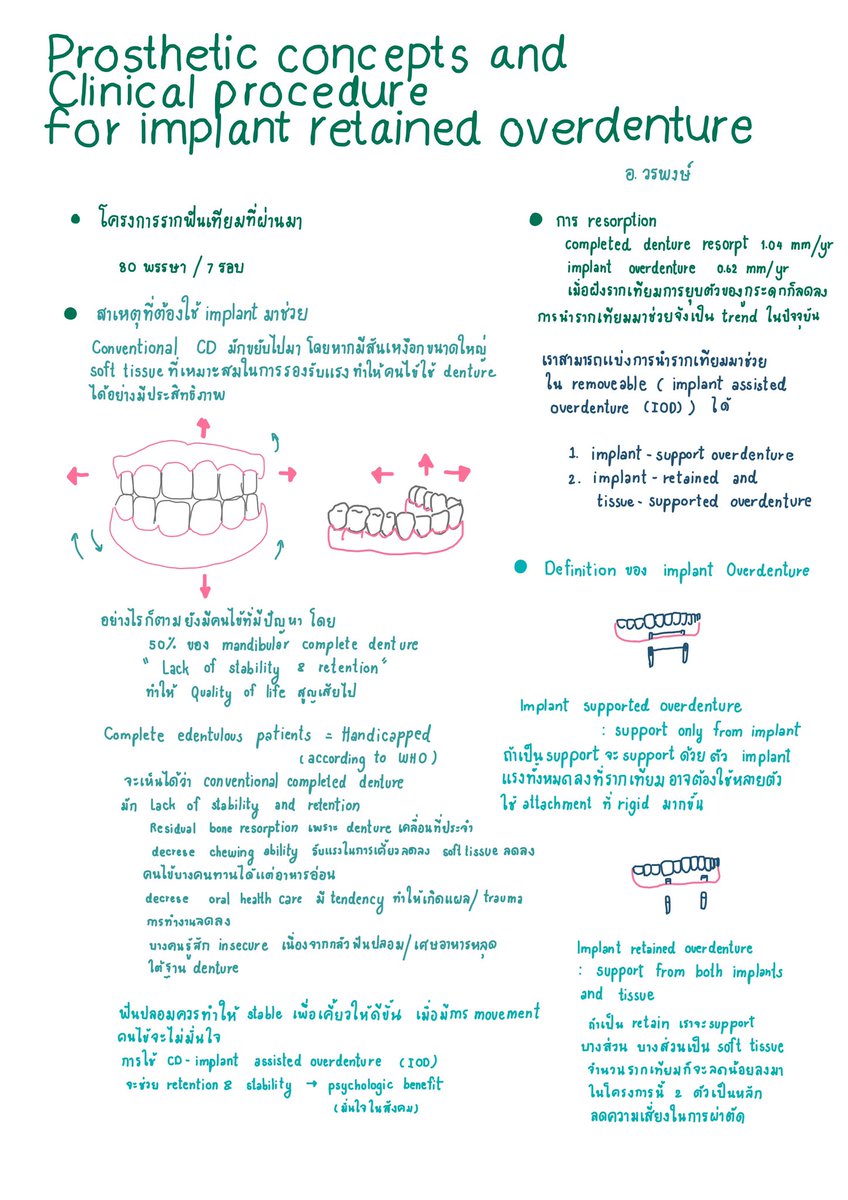 Prosthetic concepts and
Clinical procedure
for implant retained overdenture
อ. วรพงษ์
• โครงการรากฟันเทียมที่ผ่านมา
80 พรรษา / 7 รอบ
• สาเหตุที่ต้องใช้ implant มาช่วย
Conventional CD มักขยับไปมา โดยหากมีสันเหงือกขนาดใหญ่
soft tissue ที่เหมาะสมในการรองรับแรง ทำให้คนไข้ใช้ denture
ได้อย่างมีประสิทธิภาพ
อย่างไรก็ตามยังมีคนไข้ที่มีปัญหา โดย
50% ของ mandibular complete denture
" Lack of stability & retention"
ทำให้ Quality of life สูญเสียไป
Complete edentulous patients = Handicapped
(according to WHO)
จะเห็นได้ว่า conventional completed denture
มัก Lack of stability and retention
Residual bone resorption เพราะ denture เคลื่อนที่ประจำ
decrese chewing ability รับแรงในการเคี้ยวลดลง soft tissue ลดลง
คนไข้บางคนทานได้แต่อาหารอ่อน
decrese oral health care มี tendency ทำให้เกิดแผล/ trauma
การทำงานลดลง
บางคนรู้สึก insecure เนื่องจากกลัวฟันปลอม/เศษอาหารหลุด
ใต้ฐาน denture
ฟันปลอมควรทำให้ stable เพื่อเคี้ยวให้ดีขึ้น เมื่อมีการ movement
คนไข้จะไม่มั่นใจ
การใช้ CD-implant assisted overdenture (IOD)
จะช่วย retention & stability → psychologic benefit
(มั่นใจในสังคม)
• การ resorption
completed denture resorpt 1.04 mm/yr
implant overdenture 0.62 mm/yr
เมื่อฝังรากเทียมการยุบตัวของกระดูกก็ลดลง
การนำรากเทียมมาช่วยจึงเป็น trend ในปัจจุบัน
เราสามารถแบ่งการนำรากเทียมมาช่วย
ใน removeable ( implant assisted
overdenture (IOD) ) ได้
1. implant-support overdenture
2. implant-retained and
tissue-supported overdenture
• Definition ของ implant Overdenture
Implant supported overdenture
: support only from implant
ถ้าเป็น support จะ support ด้วย ตัว implant
แรงทั้งหมดลงที่รากเทียม อาจต้องใช้หลายตัว
ใช้ attachment ที่ rigid มากขึ้น
Implant retained overdenture
: support from both implants
and tissue
ถ้าเป็น retain เราจะ support
บางส่วน บางส่วนเป็น soft tissue
จำนวนรากเทียมก็จะลดน้อยลงมา
ในโครงการนี้ 2 ตัวเป็นหลัก
ลดความเสี่ยงในการผ่าตัด